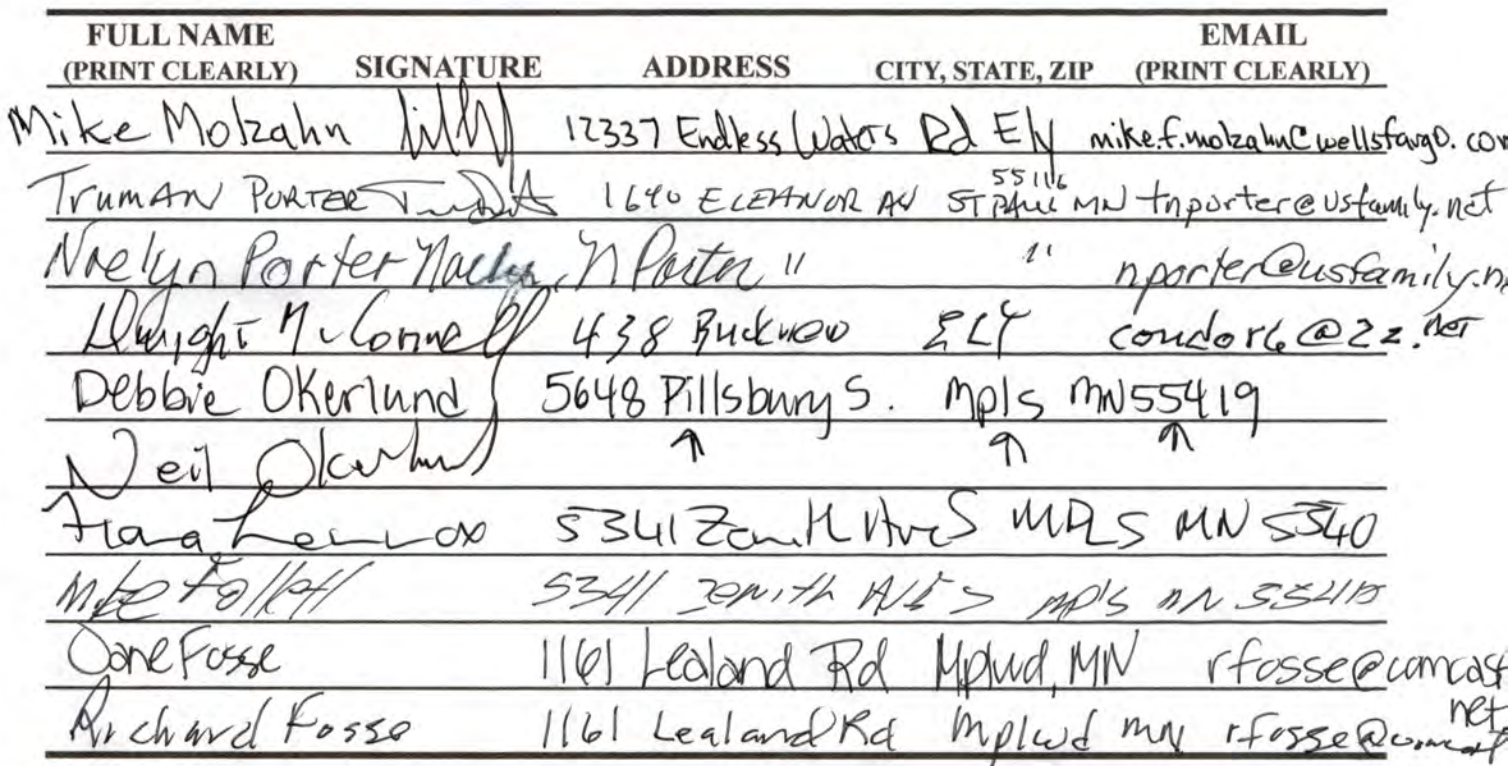 FULL NAME
(PRINT CLEARLY) SIGNATURE ADDRESS CITY, STATE, ZIP EMAIL
(PRINT CLEARLY)
Mike Molzahn 12337 Endless Waters Rd Ely mike.f.molzahn@wellsfargo.com
Truman PORTER 1640 ELEANOR AV ST PAUL MN 55116 tnporter@usfamily.net
Noelyn Porter N Porter " " nporter@usfamily.n
Dwight McConnell 438 ELY @2z.net
Debbie Okerlund 5648 Pillsbury S. Mpls MN 55419
Neil Okerlund ↑ ↑ ↑
Lennox 5341 Zenith Ave S MPLS MN 5540
Mike 5341 Zenith Ave S mpls mn 55410
Jane Fosse 1161 Lealand Rd Mplwd, MN rfosse@comcast
net
Richard Fosse 1161 Lealand Rd Mplwd mn rfosse@comcast